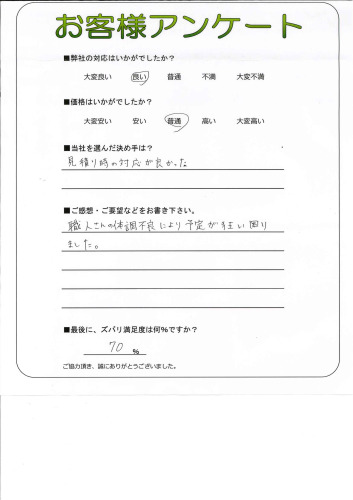 お客様アンケート
■弊社の対応はいかがでしたか？
大変良い 良い 普通 不満 大変不満
■価格はいかがでしたか？
大変安い 安い 普通 高い 大変高い
■当社を選んだ決め手は？
見積り時の対応が良かった
■ご感想・ご要望などをお書き下さい。
職人さんの体調不良により予定が狂い困り
ました。
■最後に、ズバリ満足度は何％ですか？
70 ％
ご協力頂き、誠にありがとうございました。